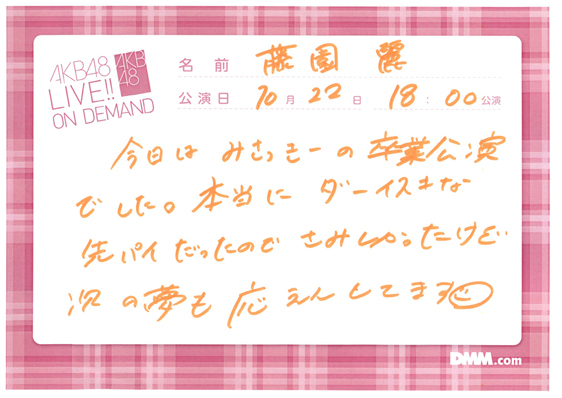 AKB48
LIVE!!
ON DEMAND
AKB
48
名前 藤園 麗
公演日 10月22日 18:00公演
今日は みさっきーの 卒業公演
でした。本当に ダーイスキな
先パイ だったので さみしかったけど
次の夢も 応えんしてます
DMM.com